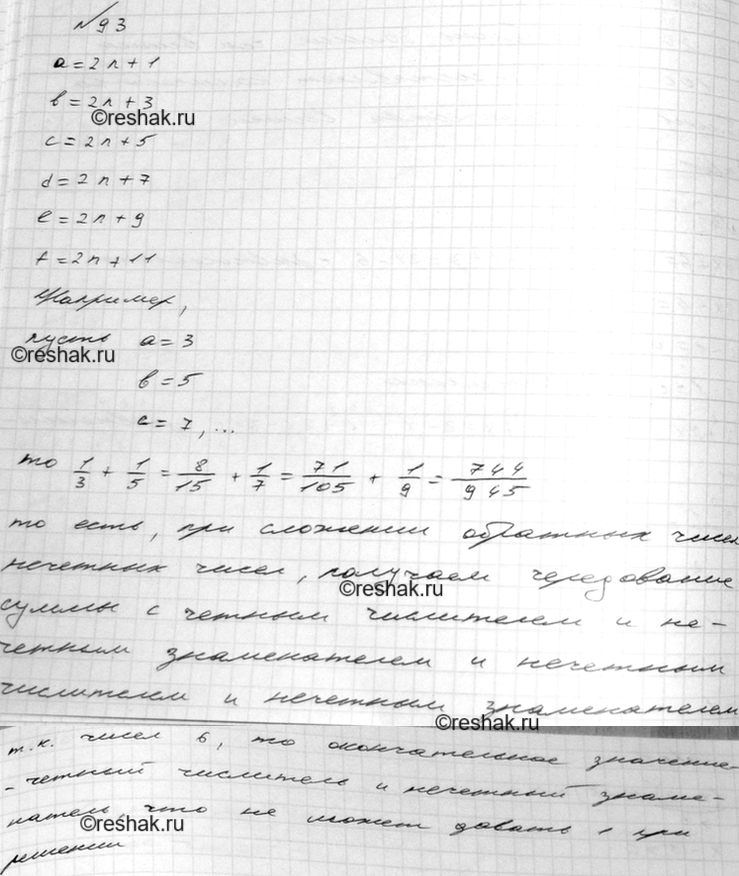 №93
a = 2n + 1
b = 2n + 3
©reshak.ru
c = 2n + 5
d = 2n + 7
e = 2n + 9
f = 2n + 11
Например,
пусть a = 3
©reshak.ru
b = 5
c = 7, ...
то 1/3 + 1/5 = 8/15 + 1/7 = 71/105 + 1/9 = 744/945
то есть, при сложении обратных чисел
нечетных чисел, получаем чередование
©reshak.ru
суммы с четным числителем и не-
четным знаменателем и нечетным
числителем и нечетным знаменателем
©reshak.ru
т.к. чисел 6, то окончательное значение
- четный числитель и нечетный знаме-
натель, что не может давать 1 при
©reshak.ru
решении